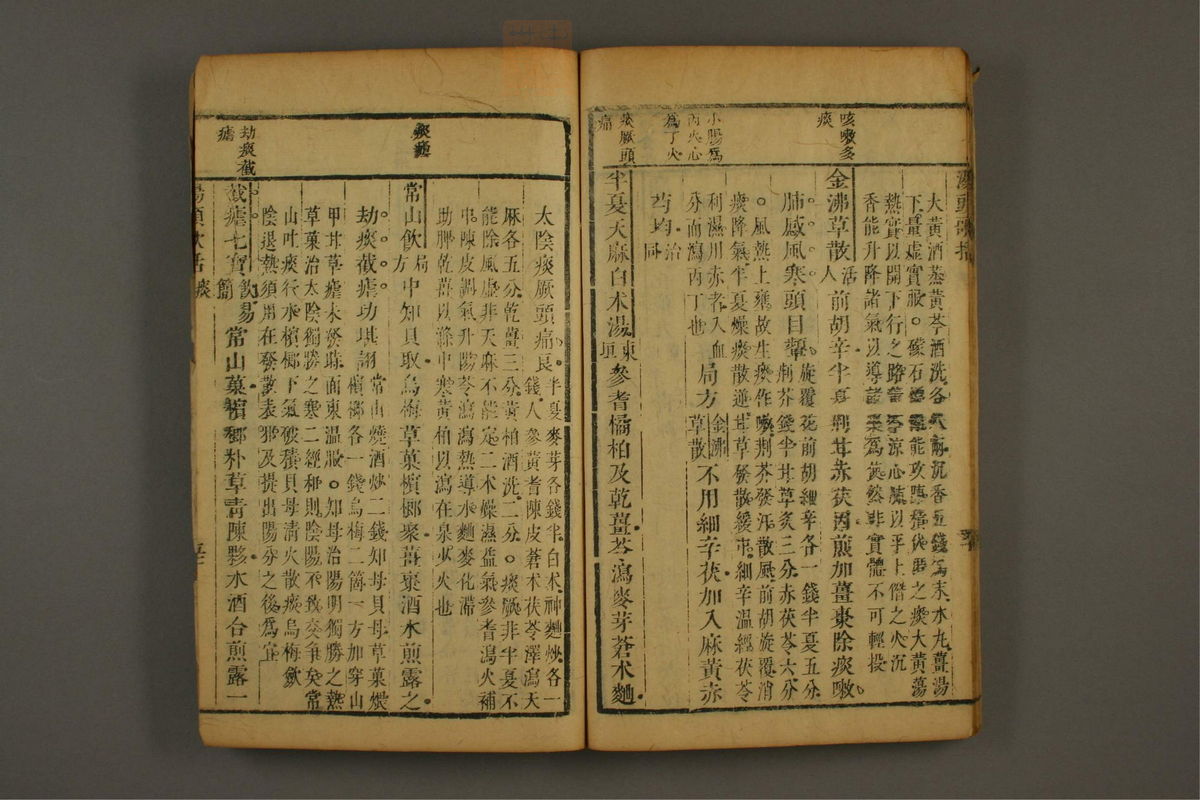 湯頭歌括
大黃酒蒸黃芩酒洗各八兩沉香五錢為末水丸薑湯
下量虛實服礞石
熱實以開下行之路黃芩涼心肺以平上僭之火沉
香能升降諸氣以導諸藥為使然非實體不可輕投
咳嗽多
痰
金沸草散活人前胡辛半夏荊甘赤茯因煎加薑棗除痰嗽
肺感風寒頭目顰旋覆花前胡細辛各一錢半夏五分
荊芥錢半甘草炙三分赤茯苓六分
風熱上壅故生痰作嗽荊芥發汗散風前胡旋覆消
痰降氣半夏燥痰散逆甘草發散緩中細辛溫經茯苓
利濕用赤者入血
分而瀉丙丁也
局方金沸草散不用細辛茯加入麻黃赤
小腸為
丙火心
為丁火
芍均治
同
痰厥頭
痛
半夏天麻白朮湯東垣參耆橘柏及乾薑苓瀉麥芽蒼朮麯
太陰痰厥頭痛良半夏麥芽各錢半白朮神麯炒各一
錢人參黃耆陳皮蒼朮茯苓澤瀉天
麻各五分乾薑三分黃柏酒洗二分痰厥非半夏不
能除風虛非天麻不能定二朮燥濕益氣參耆瀉火補
中陳皮調氣升陽苓瀉瀉熱導水麯麥化滯
助脾乾薑以滌中寒黃柏以瀉在泉少火也
痰瘧
常山飲局方中知貝取烏梅草菓檳榔聚薑棗酒水煎露之
劫痰截瘧功堪詡常山燒酒炒二錢知母貝母草菓煨
檳榔各一錢烏梅二箇一方加穿山
甲甘草瘧未發時面東溫服知母治陽明獨勝之熱
草菓治太陰獨勝之寒二經和則陰陽不致交爭矣常
山吐痰行水檳榔下氣破積貝母清火散痰烏梅斂
陰退熱須用在發散表邪及提出陽分之後為宜
劫痰截
瘧
截瘧七寶飲易簡常山菓檳榔朴草青陳夥水酒合煎露一
湯頭歌括
痰